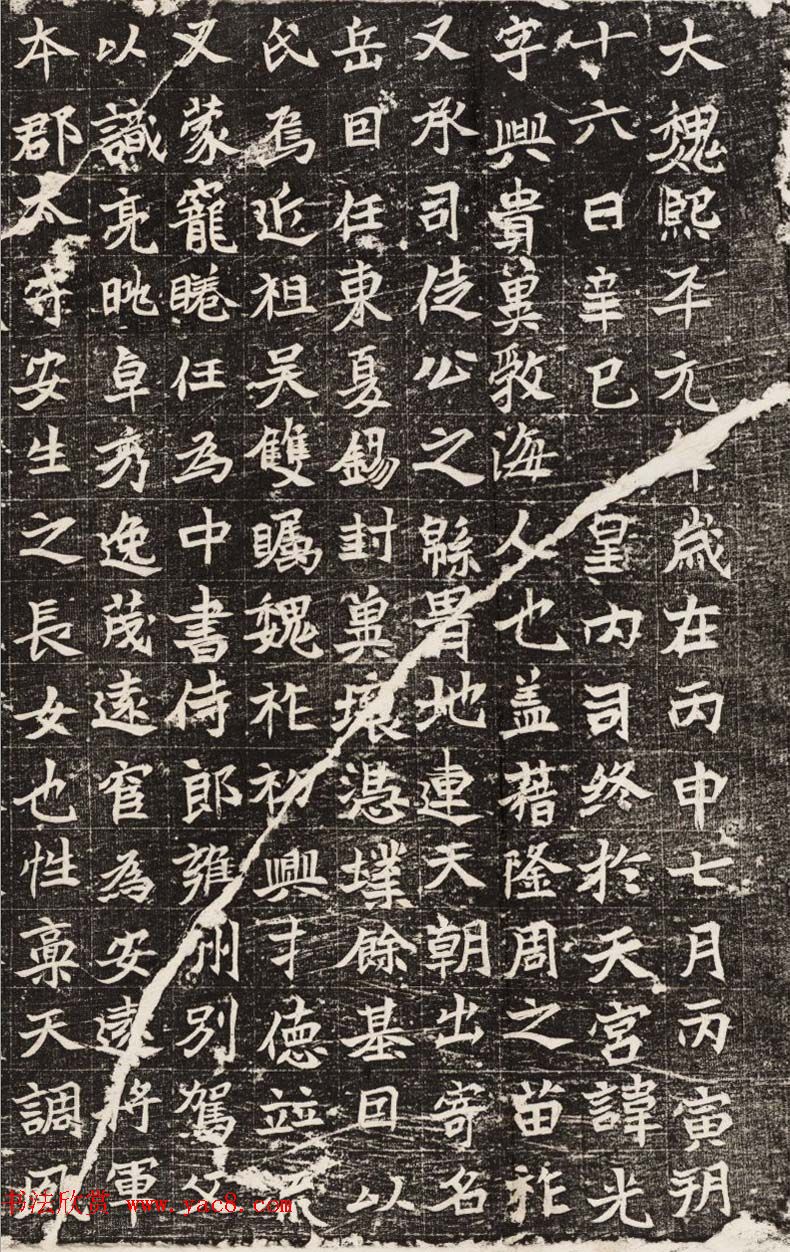 大魏熙平元年歲在丙申七月丙寅朔
十六日辛巳 皇内司終於天宮諱光
字興貴冀敦海人也盖藉隆周之苗祚
又承司徒公之緜冑地連天朝出寄名
岳囙任東夏錫封冀壤憑墣餘基囙以
氏焉近祖吴雙矚魏祚初興才德竝
又蒙寵睠任為中書侍郎雍州别駕父
以識亮眺卓秀逸茂遠官為安遠將軍
本郡太守安生之長女也性稟天調風
书法欣赏 www.yac8.com